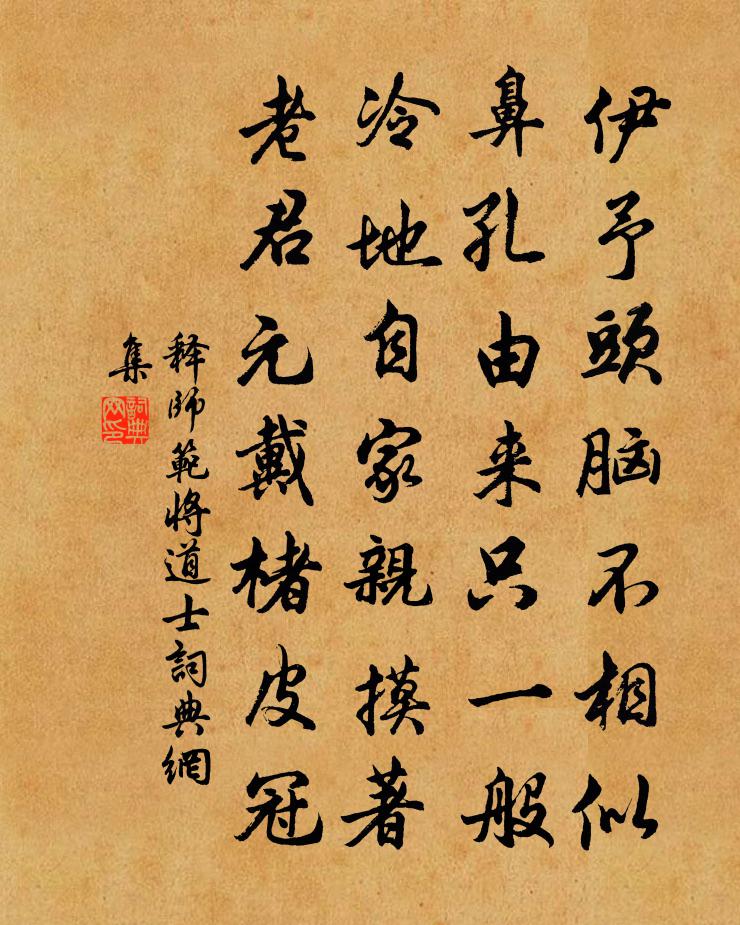 伊予頭脑不相似
鼻孔由来只一般
冷地自家親摸著
老君元戴楮皮冠
释師範将道士詞典網
集
詞典網印